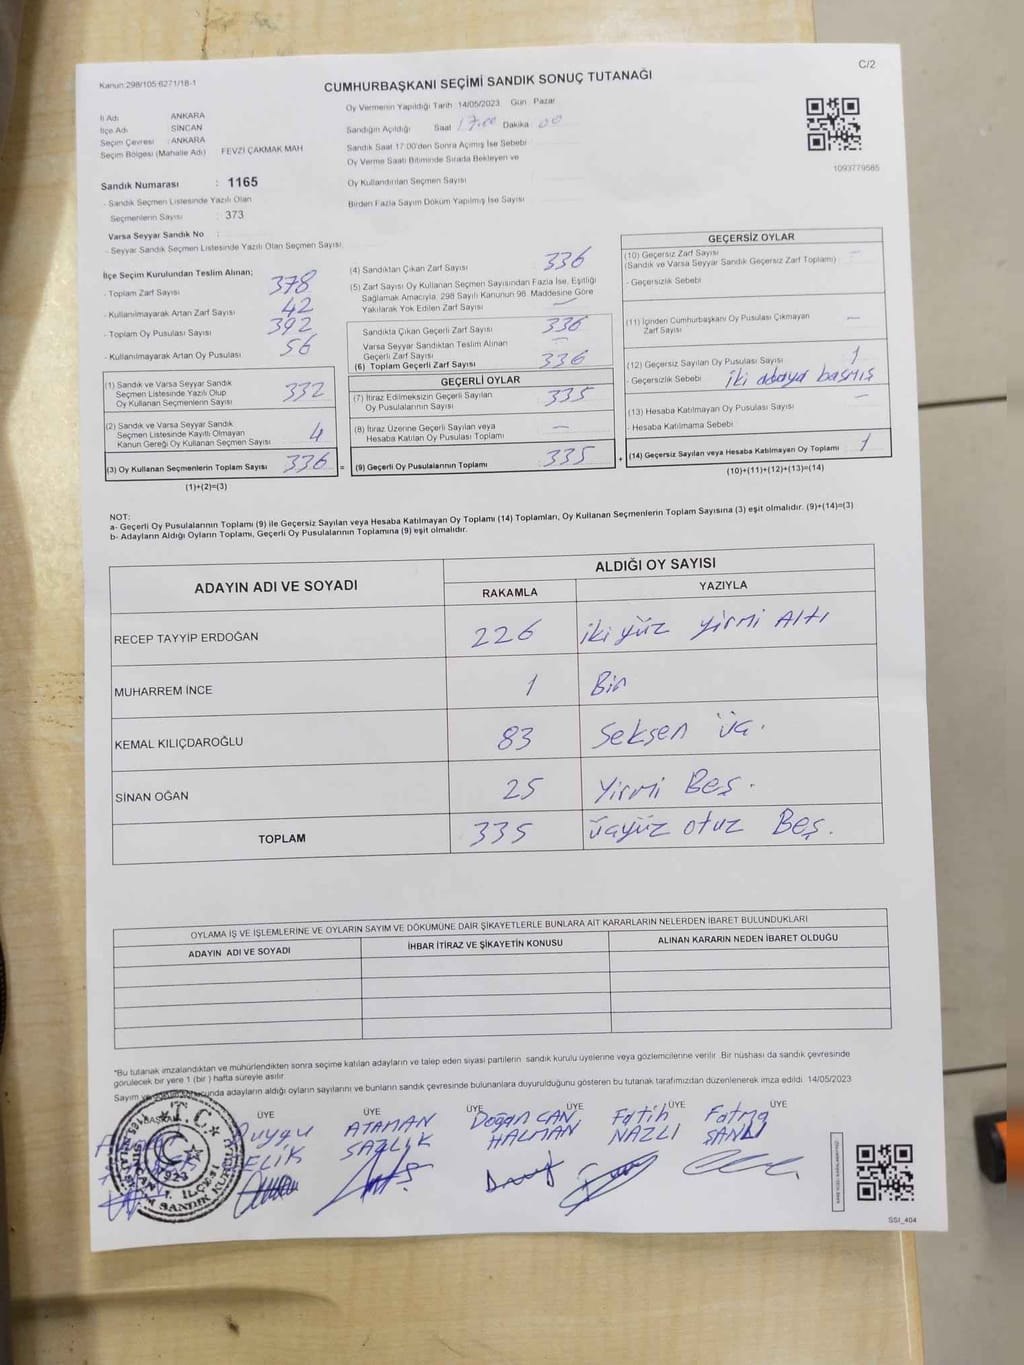 Kanun:298/105:6271/18-1
C/2
CUMHURBAŞKANI SEÇİMİ SANDIK SONUÇ TUTANAĞI
İl Adı ANKARA
İlçe Adı SİNCAN
Seçim Çevresi : ANKARA
Seçim Bölgesi (Mahalle Adı) FEVZİ ÇAKMAK MAH
Sandık Numarası : 1165
- Sandık Seçmen Listesinde Yazılı Olan
Seçmenlerin Sayısı : 373
Varsa Seyyar Sandık No :
- Seyyar Sandık Seçmen Listesinde Yazılı Olan Seçmen Sayısı
Oy Vermenin Yapıldığı Tarih 14/05/2023 Gün Pazar
Sandığın Açıldığı Saat 17.00 Dakika 00
Sandık Saat 17:00'den Sonra Açılmış İse Sebebi
Oy Verme Saati Bitiminde Sırada Bekleyen ve
Oy Kullandırılan Seçmen Sayısı
Birden Fazla Sayım Döküm Yapılmış İse Sayısı
1093779585
İlçe Seçim Kurulundan Teslim Alınan;
- Toplam Zarf Sayısı 378
- Kullanılmayarak Artan Zarf Sayısı 42
- Toplam Oy Pusulası Sayısı 392
- Kullanılmayarak Artan Oy Pusulası 56
(1) Sandık ve Varsa Seyyar Sandık
Seçmen Listesinde Yazılı Olup
Oy Kullanan Seçmenlerin Sayısı 332
(2) Sandık ve Varsa Seyyar Sandık
Seçmen Listesinde Kayıtlı Olmayan
Kanun Gereği Oy Kullanan Seçmen Sayısı 4
(3) Oy Kullanan Seçmenlerin Toplam Sayısı 336 =
(1)+(2)=(3)
(4) Sandıktan Çıkan Zarf Sayısı 336
(5) Zarf Sayısı Oy Kullanan Seçmen Sayısından Fazla İse, Eşitliği
Sağlamak Amacıyla, 298 Sayılı Kanunun 98. Maddesine Göre
Yakılarak Yok Edilen Zarf Sayısı —
Sandıkta Çıkan Geçerli Zarf Sayısı 336
Varsa Seyyar Sandıktan Teslim Alınan
Geçerli Zarf Sayısı —
(6) Toplam Geçerli Zarf Sayısı 336
GEÇERLİ OYLAR
(7) İtiraz Edilmeksizin Geçerli Sayılan
Oy Pusulalarının Sayısı 335
(8) İtiraz Üzerine Geçerli Sayılan veya
Hesaba Katılan Oy Pusulası Toplamı —
(9) Geçerli Oy Pusulalarının Toplamı 335 +
GEÇERSİZ OYLAR
(10) Geçersiz Zarf Sayısı —
(Sandık ve Varsa Seyyar Sandık Geçersiz Zarf Toplamı)
- Geçersizlik Sebebi
(11) İçinden Cumhurbaşkanı Oy Pusulası Çıkmayan
Zarf Sayısı —
(12) Geçersiz Sayılan Oy Pusulası Sayısı 1
- Geçersizlik Sebebi iki adaya basmış
(13) Hesaba Katılmayan Oy Pusulası Sayısı —
- Hesaba Katılmama Sebebi
(14) Geçersiz Sayılan veya Hesaba Katılmayan Oy Toplamı 1
(10)+(11)+(12)+(13)=(14)
NOT:
a- Geçerli Oy Pusulalarının Toplamı (9) ile Geçersiz Sayılan veya Hesaba Katılmayan Oy Toplamı (14) Toplamları, Oy Kullanan Seçmenlerin Toplam Sayısına (3) eşit olmalıdır. (9)+(14)=(3)
b- Adayların Aldığı Oyların Toplamı, Geçerli Oy Pusulalarının Toplamına (9) eşit olmalıdır.
ADAYIN ADI VE SOYADI ALDIĞI OY SAYISI
RAKAMLA YAZIYLA
RECEP TAYYİP ERDOĞAN 226 iki yüz yirmi Altı
MUHARREM İNCE 1 Bir
KEMAL KILIÇDAROĞLU 83 Seksen üç.
SİNAN OĞAN 25 Yirmi Beş.
TOPLAM 335 üçyüz otuz Beş.
OYLAMA İŞ VE İŞLEMLERİNE VE OYLARIN SAYIM VE DÖKÜMÜNE DAİR ŞİKAYETLERLE BUNLARA AİT KARARLARIN NELERDEN İBARET BULUNDUKLARI
ADAYIN ADI VE SOYADI İHBAR İTİRAZ VE ŞİKAYETİN KONUSU ALINAN KARARIN NEDEN İBARET OLDUĞU
*Bu tutanak imzalandıktan ve mühürlendikten sonra seçime katılan adayların ve talep eden siyasi partilerin sandık kurulu üyelerine veya gözlemcilerine verilir. Bir nüshası da sandık çevresinde
görülecek bir yere 1 (bir) hafta süreyle asılır.
Sayım ve adayların aldığı oyların sayılarını ve bunların sandık çevresinde bulunanlara duyurulduğunu gösteren bu tutanak tarafımızdan düzenlenerek imza edildi. 14/05/2023
ÜYE ÜYE ÜYE ÜYE ÜYE
Duygu ATAMAN Doğan CAN Fatih Fatma
ÇELİK SAĞLIK HALMAN NAZLI ŞANLI
T.C.
SSI_404